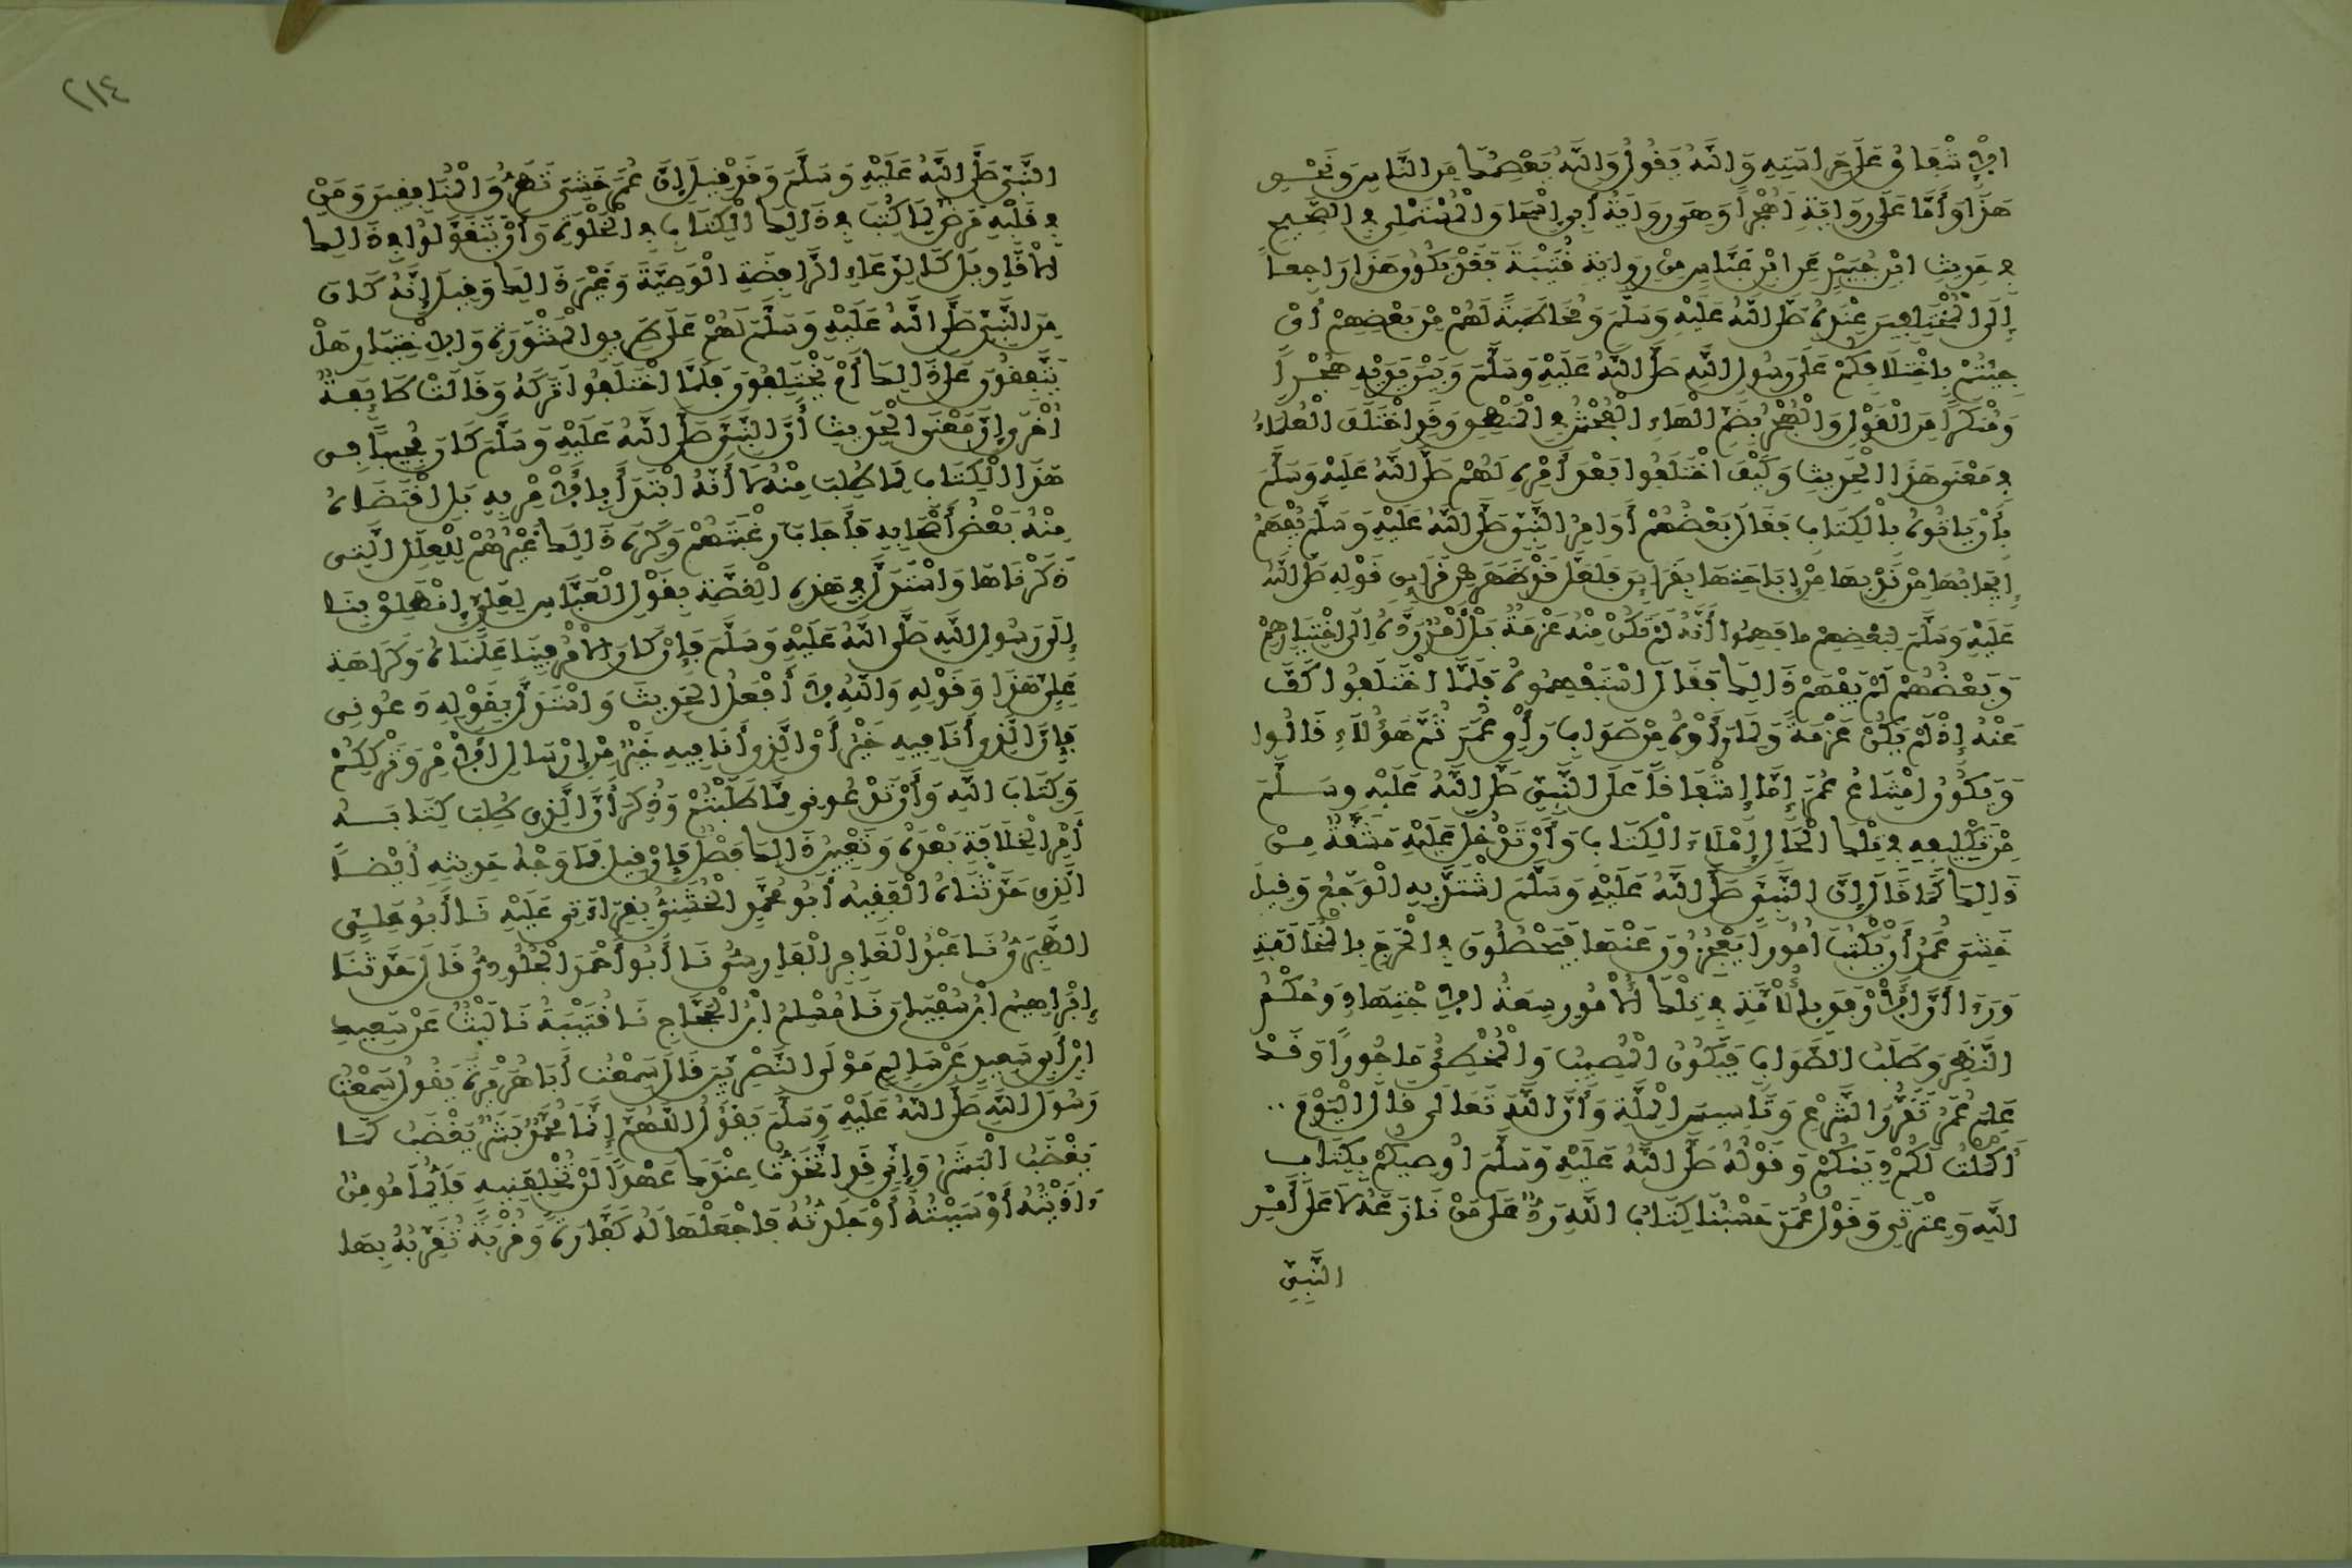 الاشفاق على حراسته والله يقول والله يعصمك من الناس ونحو
هذا وأما على رواية أهجرا وهو رواية أبي إسحاق والمستملي في الصحيح
في حديث ابن جبير عن ابن عباس من رواية قتيبة فقد يكون هذا راجعا
إلى المختلفين عنده صلى الله عليه وسلم ومخاطبة لهم من بعضهم أي
جئتم باختلافكم على رسول الله صلى الله عليه وسلم وبين يديه هجرا
ومنكرا من القول والهجر بضم الهاء الفحش في المنطق وقد اختلف العلماء
في معنى هذا الحديث وكيف اختلفوا بعد أمره لهم صلى الله عليه وسلم
بأن ياتوه بالكتاب فقال بعضهم أوامر النبي صلى الله عليه وسلم يفهم
إيجابها من ندبها من إباحتها بقراين فلعل قد ظهر من قراين قوله صلى الله
عليه وسلم لبعضهم ما فهموا أنه لم تكن منه عزمة بل أمر رده إلى اختيارهم
وبعضهم لم يفهم ذالك فقال استفهموه فلما اختلفوا كف
عنه إذ لم يكن عزمة ولما رأوه من صواب رأي عمر ثم هؤلاء قالوا
ويكون امتناع عمر إما إشفاقا على النبي صلى الله عليه وسلم
من تكليفه في تلك الحال إملاء الكتاب وأن تدخل عليه مشقة من
ذالك كما قال إن النبي صلى الله عليه وسلم اشتد به الوجع وقيل
خشي عمر أن يكتب أمورا يعجزون عنها فيحصلون في الحرج بالمخالفة
ورءا أن الأرفق بالأمة في تلك الأمور سعة الاجتهاد وحكم
النظر وطلب الصواب فيكون المصيب والمخطئ ماجورا وقد
علم عمر تقرر الشرع وتأسيس الملة وأن الله تعالى قال اليوم
أكملت لكم دينكم وقوله صلى الله عليه وسلم أوصيكم بكتاب
الله وعترتي وقول عمر حسبنا كتاب الله رد على من نازعه لا على أمر
النبي
٢١٤
النبي صلى الله عليه وسلم وقد قيل إن عمر خشي تطرق المنافقين ومن
في قلبه مرض لما كتب في ذالك الكتاب في الخلوة وأن يتقولوا في ذالك
الأقاويل كادعاء الرافضة الوصية وغير ذالك وقيل إنه كان
من النبي صلى الله عليه وسلم لهم على طريق المشورة والاختبار هل
يتفقون على ذالك أم يختلفون فلما اختلفوا تركه وقالت طايفة
أخرى إن معنى الحديث أن النبي صلى الله عليه وسلم كان مجيبا في
هذا الكتاب لما طلب منه لا أنه ابتدأ بالأمر به بل اقتضاه
منه بعض أصحابه فأجاب رغبتهم وكره ذالك غيرهم للعلل التي
ذكرناها واستدل في هذه القصة بقول العباس لعلي انطلق بنا
إلى رسول الله صلى الله عليه وسلم فإن كان الأمر فينا علمناه وكراهة
علي هذا وقوله والله لا أفعل الحديث واستدل بقوله دعوني
فإن الذي أنا فيه خير أي الذي أنا فيه خير من إرسال الأمر وترككم
وكتاب الله وأن تدعوني مما طلبتم وذكر أن الذي طلب كتابة
أمر الخلافة بعده وتعيين ذالك فصل فإن قيل فما وجه حديثه أيضا
الذي حدثناه الفقيه أبو محمد الخشني بقراءتي عليه نا أبو علي
الطبري نا عبد الغافر الفارسي نا أبو أحمد الجلودي قال حدثنا
إبراهيم ابن سفيان نا مسلم ابن الحجاج نا قتيبة نا ليث عن سعيد
ابن أبي سعيد عن سالم مولى النصريين قال سمعت أبا هريرة يقول سمعت
رسول الله صلى الله عليه وسلم يقول اللهم إنما محمد بشر يغضب كما
يغضب البشر وإني قد اتخذت عندك عهدا لن تخلفنيه فأيما مومن
ءاذيته أو سببته أو جلدته فاجعلها له كفارة وقربة تقربه بها